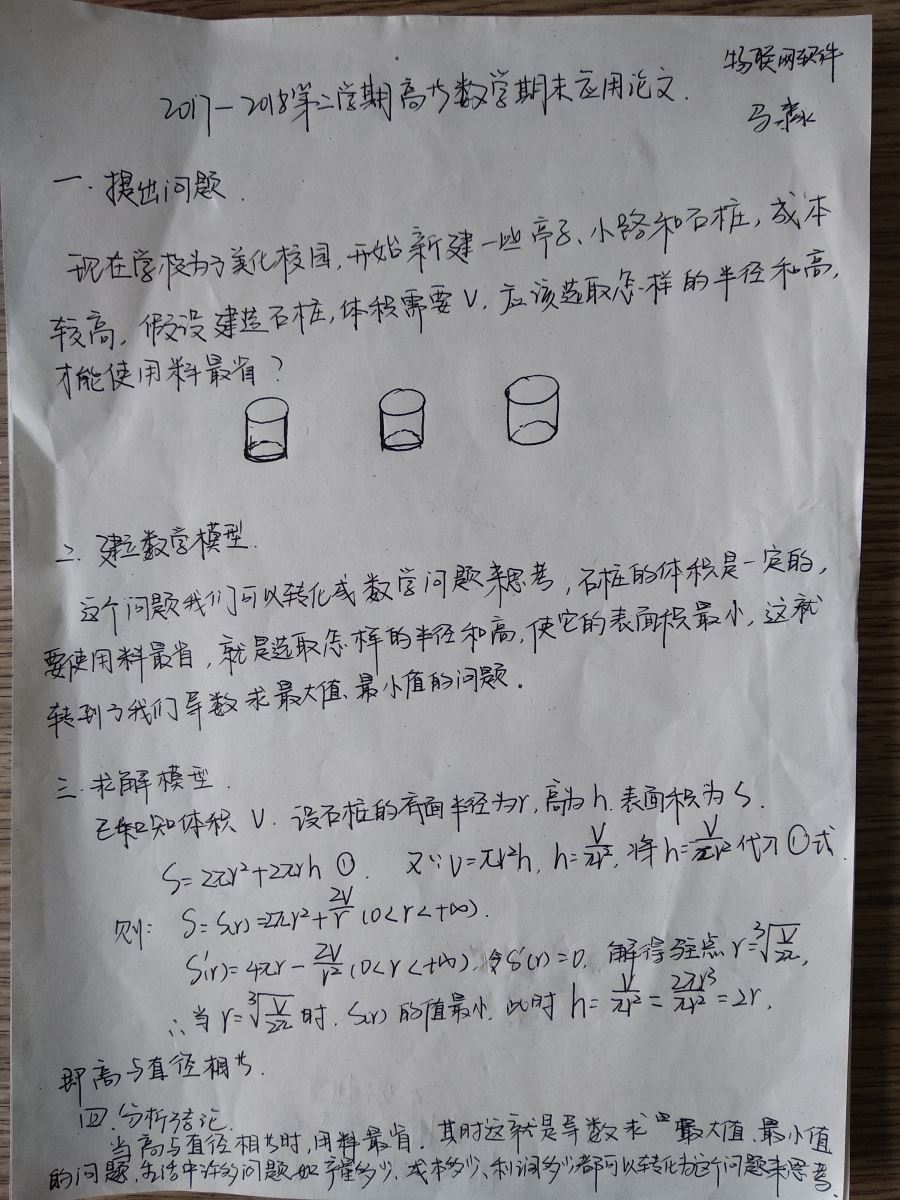 物联网软件
2017-2018第二学期高等数学期末应用论文.
马
一.提出问题.
现在学校为了美化校园,开始新建一些亭子、小路和石桩,成本
较高,假设建造石桩,体积需要V,应该选取怎样的半径和高,
才能使用料最省?
二.建立数学模型.
这个问题我们可以转化成数学问题来思考,石桩的体积是一定的,
要使用料最省,就是选取怎样的半径和高,使它的表面积最小,这就
转到了我们导数求最大值、最小值的问题。
三.求解模型.
已知体积V.设石桩的底面半径为r,高为h.表面积为S.
S=2πr²+2πrh ①. 又∵V=πr²h, h=V/πr², 将h=V/πr²代入①式.
则: S=S(r)=2πr²+2V/r (0<r<+∞).
S'(r)=4πr-2V/r² (0<r<+∞),令S'(r)=0, 解得驻点r=³√(V/2π),
∴当r=³√(V/2π)时,S(r)的值最小,此时h=V/πr²=2πr³/πr²=2r,
即高与直径相等.
四.分析结论.
当高与直径相等时,用料最省.其时这就是导数求最大值、最小值
的问题,生活中许多问题如产量多少、成本多少、利润多少都可以转化为这个问题来思考.